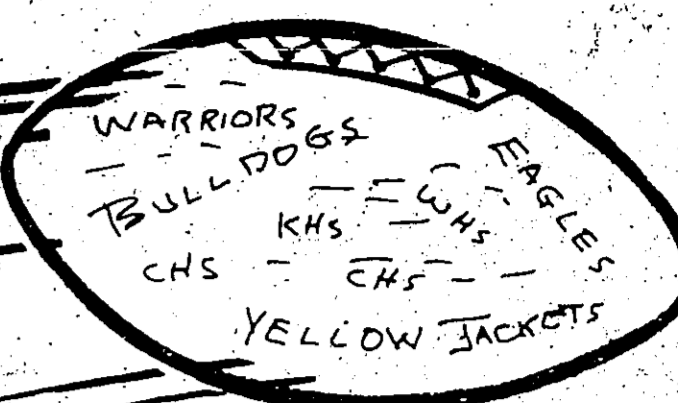 WARRIORS
BULLDOGS
EAGLES
KHS
WHS
CHS
CHS
YELLOW JACKETS